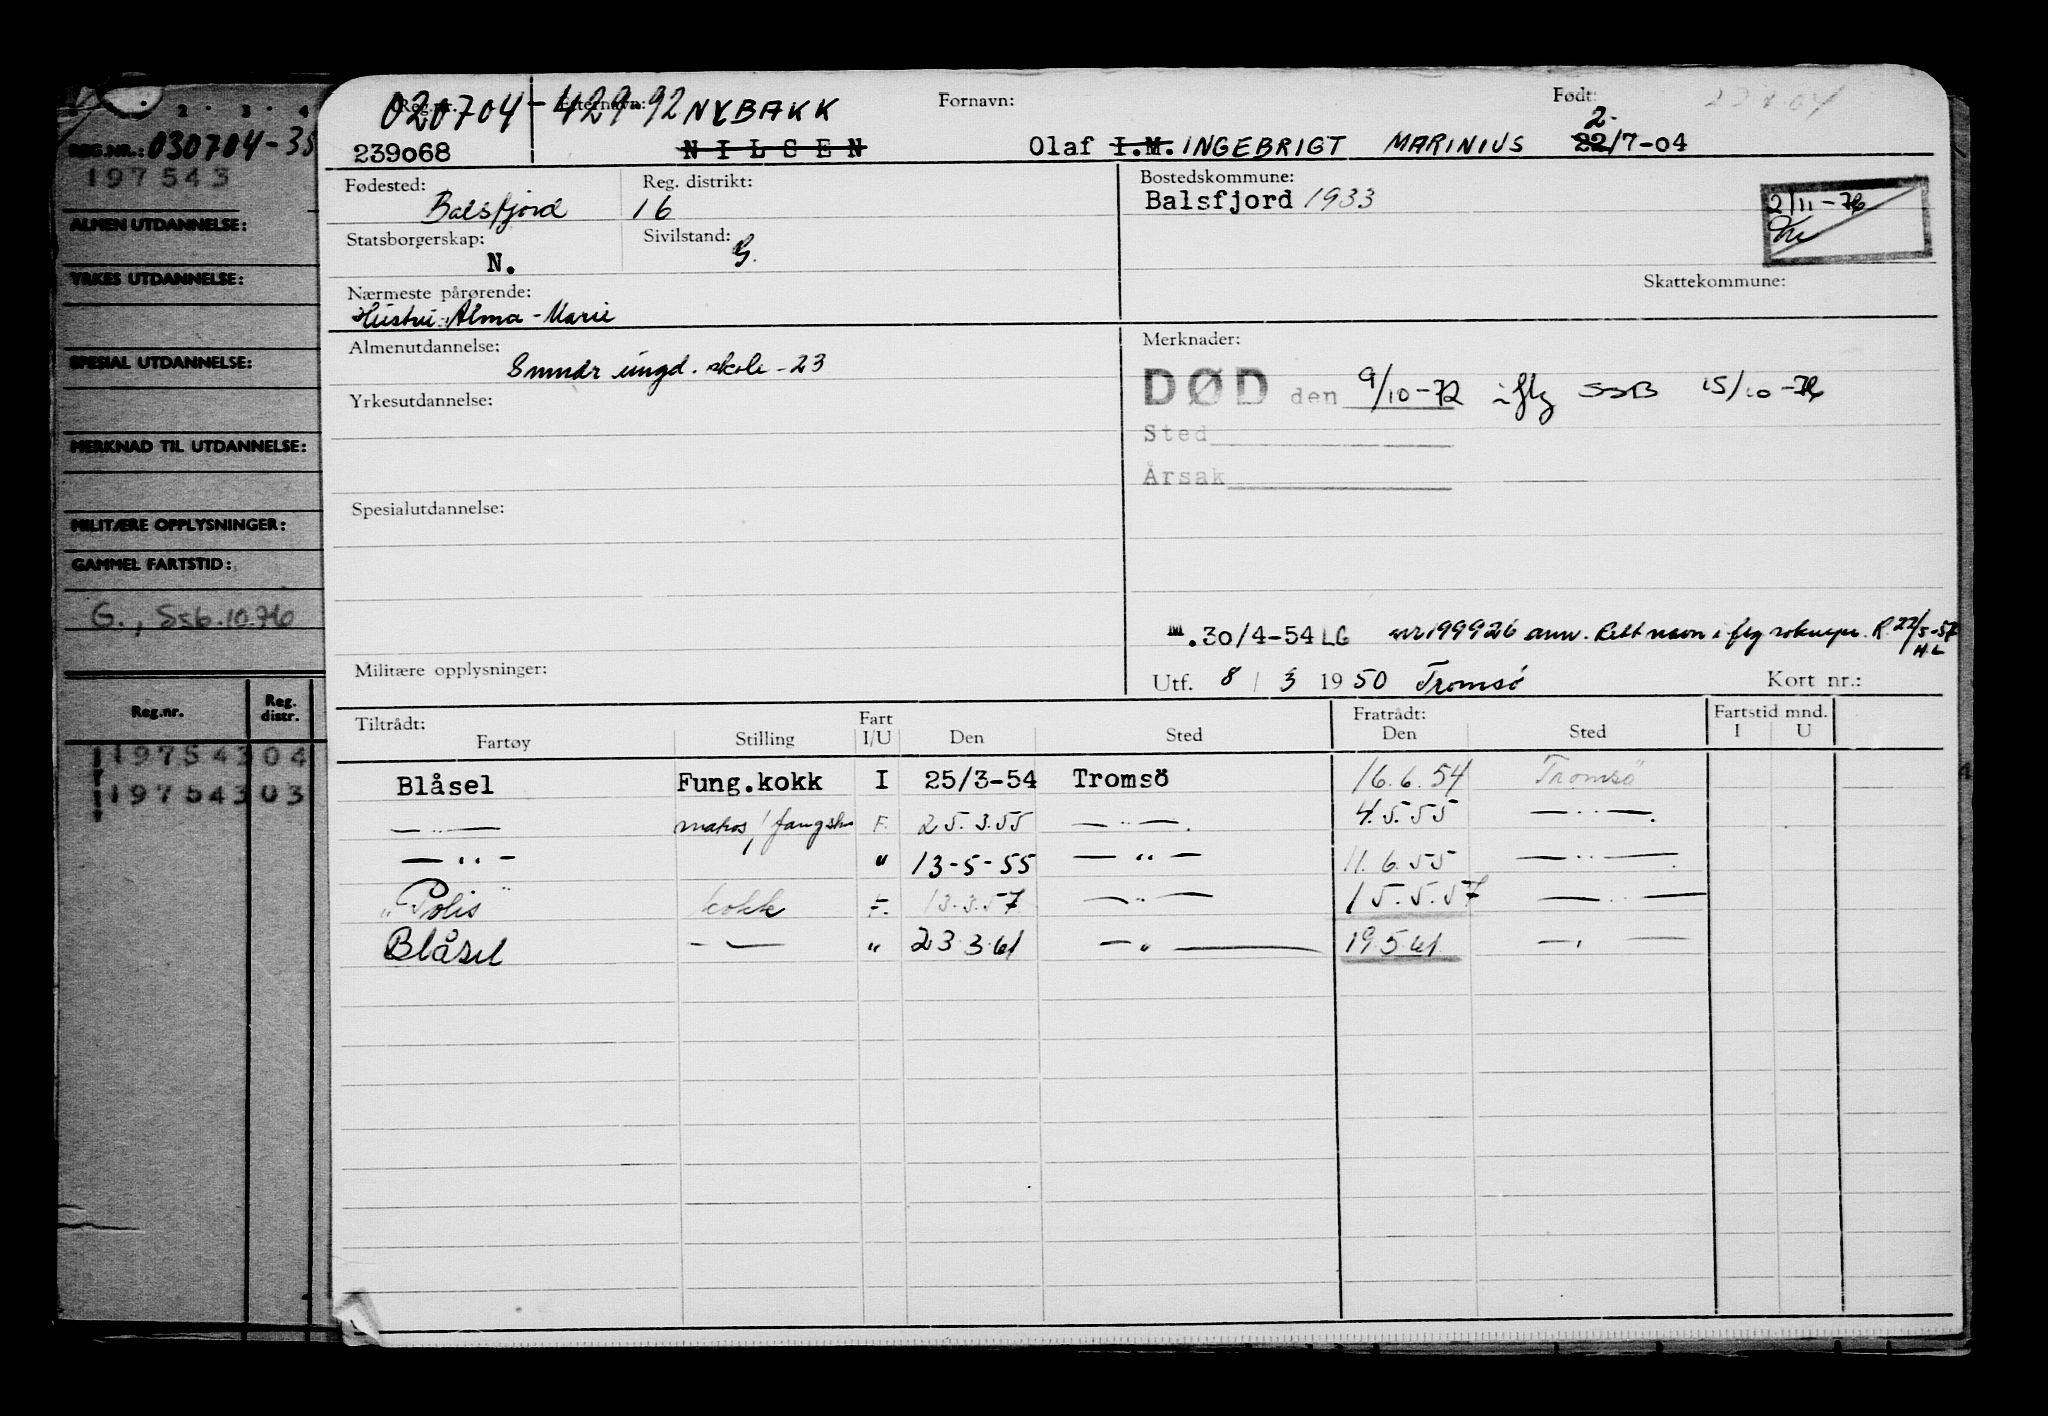 2 · 3 · 4
REG.NR.: 030704-35
197543
ALMEN UTDANNELSE:
YRKES UTDANNELSE:
SPESIAL UTDANNELSE:
MERKNAD TIL UTDANNELSE:
MILITÆRE OPPLYSNINGER:
GAMMEL FARTSTID:
G., Ssb. 10.76
Reg.nr. Reg. distr.
197543 04
197543 03
Reg.nr. Etternavn: Fornavn: Født:
020704-42992 NYBAKK 2.
239o68 NILSEN Olaf I.M. INGEBRIGT MARINIUS 22/7-04
Fødested: Reg. distrikt: Bostedskommune:
Balsfjord 16 Balsfjord 1933
2/11-76
Statsborgerskap: Sivilstand:
N. G.
Nærmeste pårørende: Skattekommune:
Hustru: Alma-Marie
Almenutdannelse: Merknader:
ungd. skole -23
DØD den 9/10-72 iflg SSB 15/10-76
Yrkesutdannelse:
Sted
Årsak
Spesialutdannelse:
M.30/4-54 LG nr 199926 ann. Rett navn i flg R. 22/5-57
H.L
Militære opplysninger: Utf. 8 / 3 1950 Tromsø Kort nr.:
Tiltrådt: Fart Fratrådt: Fartstid mnd.
Fartøy Stilling I/U Den Sted Den Sted I U
Blåsel Fung.kokk I 25/3-54 Tromsö 16.6.54 Tromsö
— " — matros/fangstm F. 25.3.55 — " — 4.5.55 — " —
— " — " 13-5-55 — " — 11.6.55 — " —
"Polis" kokk F. 13.3.57 — " — 15.5.57 — " —
Blåsel — " — " 23 3 61 — " — 19.5 61 — " —